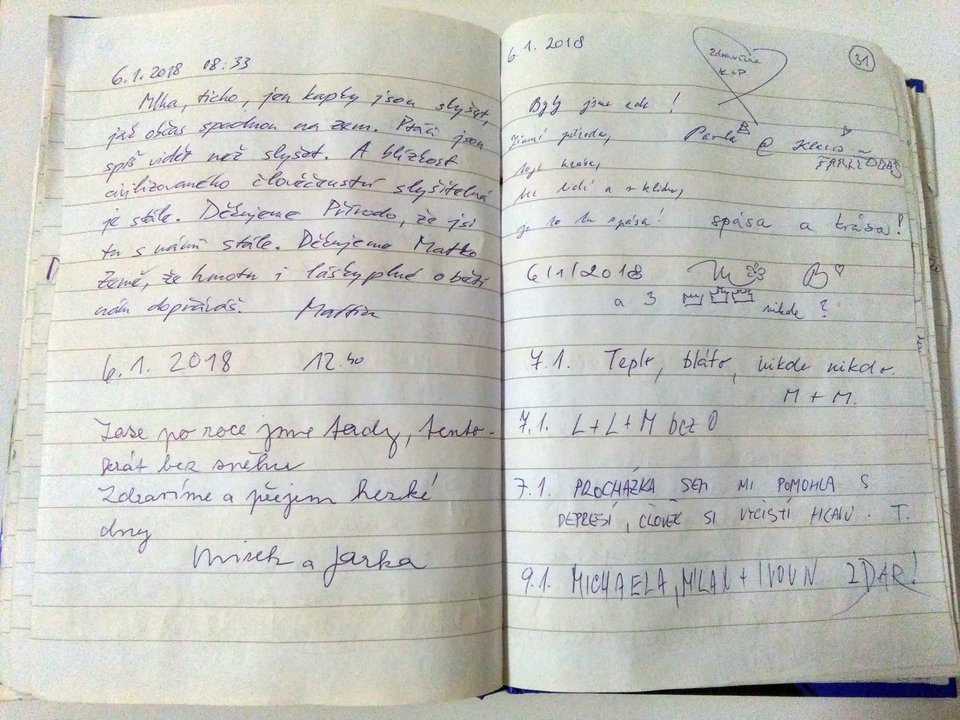 6.1.2018 08:33
Mlha, ticho, jen kapky jsou slyšet,
jak občas spadnou na zem. Ptáci jsou
spíš vidět než slyšet. A blízkost
civilizovaného člověčenství slyšitelná
je stále. Děkujeme Přírodo, že jsi
tu s námi stále. Děkujeme Matko
Země, že hmotu i láskyplné objetí
nám dopřáváš. Martin
6.1. 2018 12.40
Zase po roce jsme tady, tento-
krát bez sněhu
Zdravíme a přejem hezké
dny
Mirek a Jarka
6.1.2018
31
K+P
Byly jsme zde!
Zimní příroda,
bez lidí a s klidem,
je to tu spása! spása a krása!
6/1/2018 M B
a 3 nikde ?
7.1. Teplo, bláto, nikde nikdo.
M + M.
7.1. L+L+M bez O
7.1. PROCHÁZKA SEM MI POMOHLA S
DEPRESÍ, ČLOVĚK SI VYČISTÍ HLAVU. T.
9.1. MICHAELA, MILAN + IVOUN ZDAR!